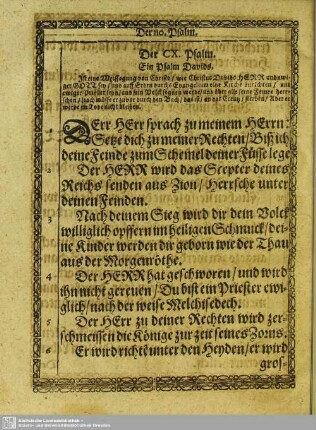 Der 110. Psalm.
Der CX. Psalm.
Ein Psalm Davids.
Ist eine Weissagung von Christo / wie Christus Davids HERR und ewi-
ger GOTT sey / und auff Erden durchs Evangelium eine Kirch anrichten / und
ewiger Priester seyn / und sein Volck segnen werde und über alle seine Feinde herr-
schen / doch müsse er zuvor durch den Bach / das ist / an das Creutz / sterben / Aber er
würde im Tode nicht bleiben.
1 DErr HErr sprach zu meinem HErrn:
Setze dich zu meiner Rechten / Biß ich
deine Feinde zum Schemel deiner Füsse lege
2 Der HERR wird das Scepter deines
Reichs senden aus Zion / Herrsche unter
deinen Feinden.
3 Nach deinem Sieg wird dir dein Volck
williglich opffern im heiligen Schmuck / dei-
ne Kinder werden dir geborn wie der Thau
aus der Morgenröthe.
4 Der HERR hat geschworen / und wird
ihn nicht gereuen / Du bist ein Priester ewi-
glich / nach der weise Melchisedech.
5 Der HErr zu deiner Rechten wird zer-
schmeissen die Könige zur zeit seines Zorns.
6 Er wird richten unter den Heyden / er wird
gros-
Sächsische Landesbibliothek -
Staats- und Universitätsbibliothek Dresden